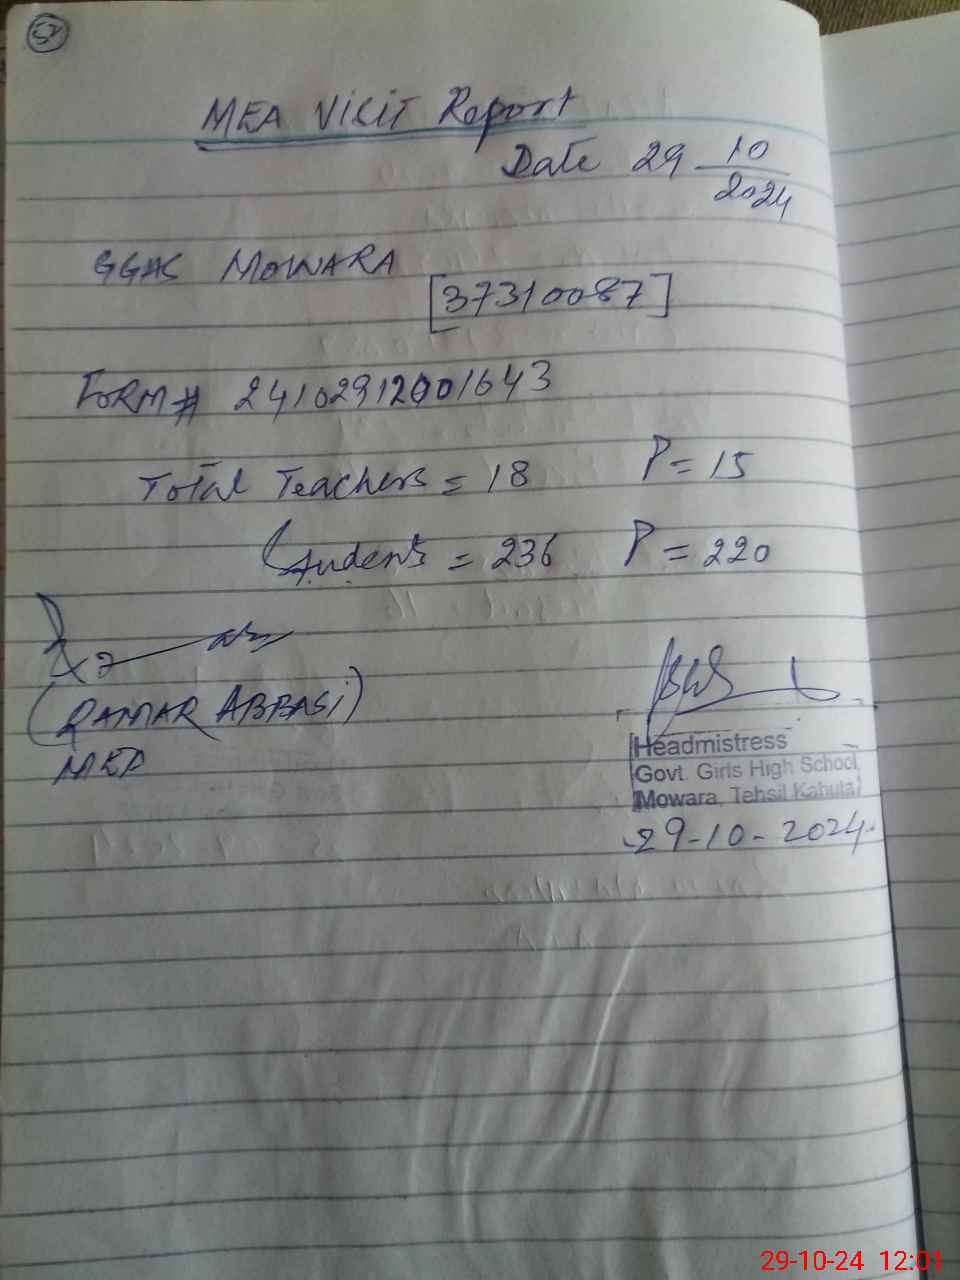 52
MEA VISIT Report
Date 29 10/2024
GGHS MOWARA
[37310087]
FORM # 24102912001643
Total Teachers = 18 P = 15
Students = 236 P = 220
(QAMAR ABBASI)
MEA
Headmistress
Govt. Girls High School
Mowara, Tehsil Kahuta
29-10-2024
29-10-24 12:01